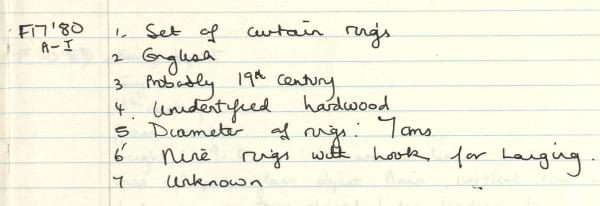 F17'80 1. Set of curtain rings
A-I
2 English
3 Probably 19th Century
4 Unidentified hardwood
5. Diameter of rings: 7cms
6 Nine rings with hook for hanging.
7 Unknown